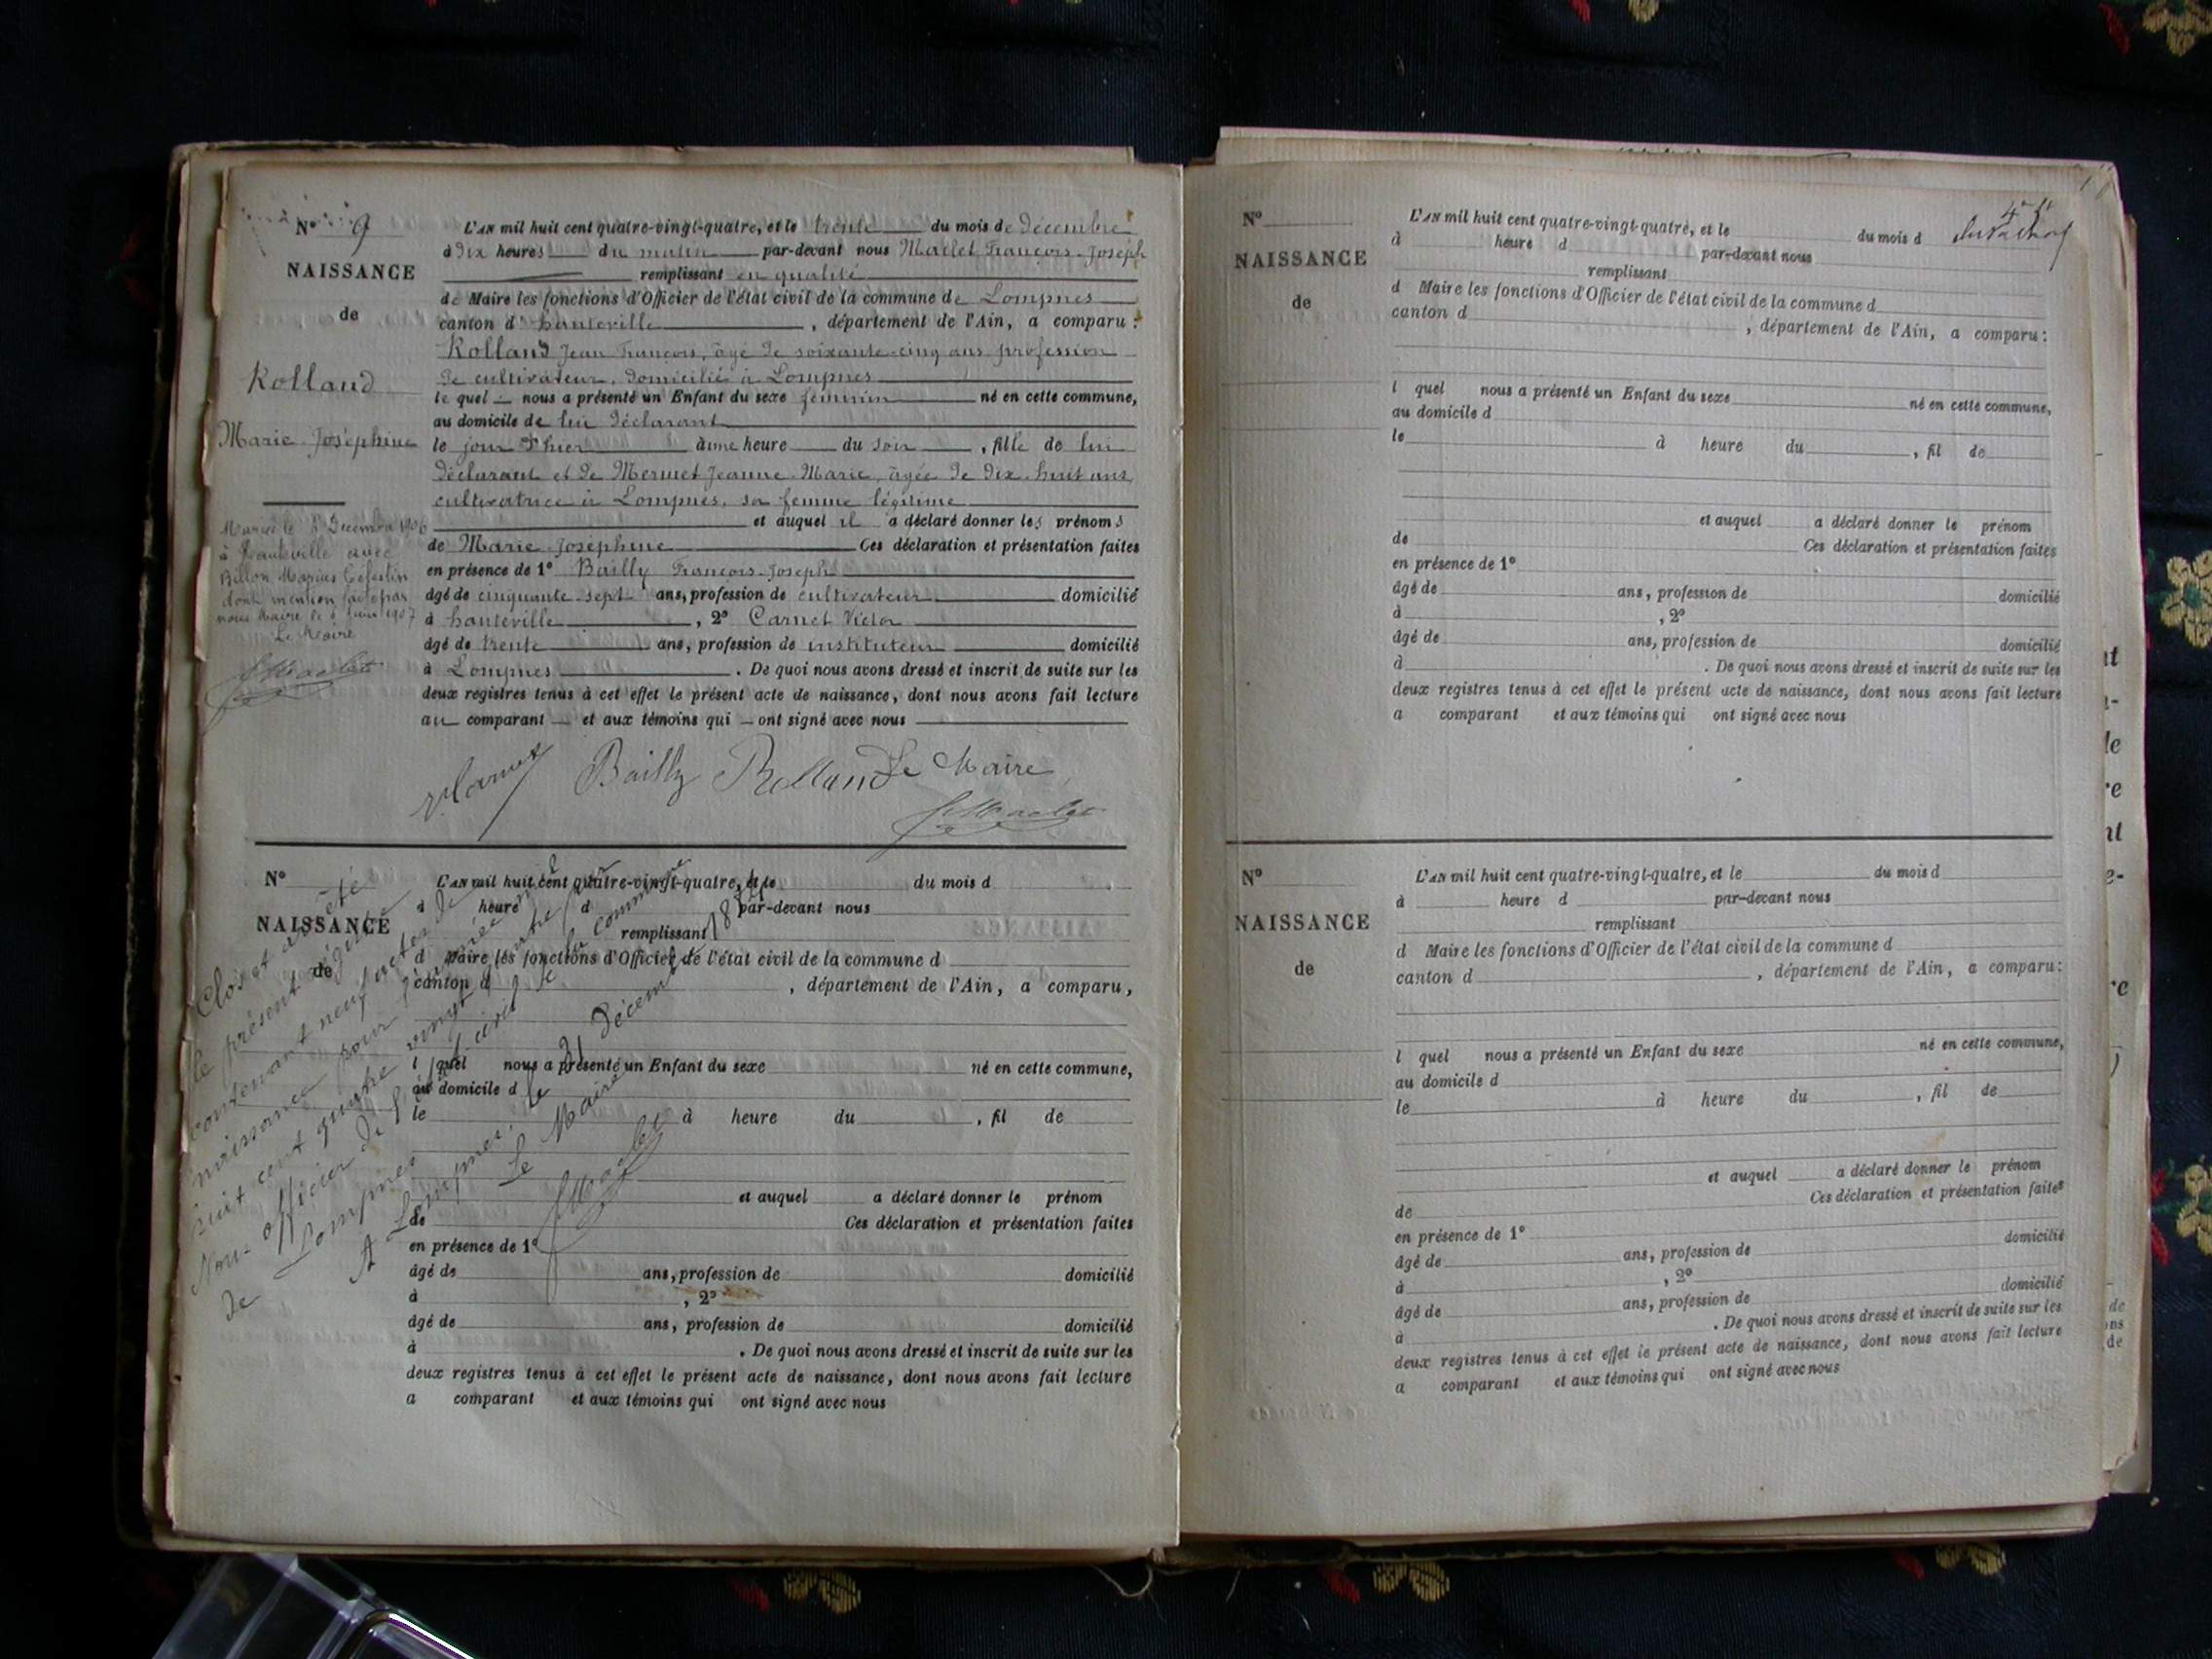 N° 9
NAISSANCE
de
Rolland
Marie Joséphine
Marié le Décembre 1906
à Hauteville avec
Billon Marius Célestin
dont mention faite par
nous Maire le juin 1907
Le Maire
L'AN mil huit cent quatre-vingt-quatre, et le trente du mois de décembre
à dix heures du matin par-devant nous Maclet François-Joseph
remplissant en qualité
de Maire les fonctions d'Officier de l'état civil de la commune de Lompnes
canton d'hauteville, département de l'Ain, a comparu :
Rolland Jean François, âgé de soixante-cinq ans profession
de cultivateur, domicilié à Lompnes
le quel nous a présenté un Enfant du sexe féminin né en cette commune,
au domicile de lui déclarant
le jour d'hier à une heure du soir, fille de lui
déclarant et de Mermet Jeanne-Marie, âgée de dix-huit ans,
cultivatrice à Lompnes, sa femme légitime
et auquel il a déclaré donner les prénoms
de Marie Joséphine Ces déclaration et présentation faites
en présence de 1° Bailly François-Joseph
âgé de cinquante sept ans, profession de cultivateur domicilié
à hauteville, 2° Carnet Victor
âgé de trente ans, profession de instituteur domicilié
à Lompnes. De quoi nous avons dressé et inscrit de suite sur les
deux registres tenus à cet effet le présent acte de naissance, dont nous avons fait lecture
au comparant et aux témoins qui ont signé avec nous
V. Carnet Bailly Rolland Le Maire
F Maclet
N°
NAISSANCE
de
L'AN mil huit cent quatre-vingt-quatre, et le du mois d
à heure d par-devant nous
remplissant
d Maire les fonctions d'Officier de l'état civil de la commune d
canton d , département de l'Ain, a comparu,
l quel nous a présenté un Enfant du sexe né en cette commune,
au domicile d
le à heure du , fil de
et auquel a déclaré donner le prénom
de Ces déclaration et présentation faites
en présence de 1°
âgé de ans, profession de domicilié
à , 2°
âgé de ans, profession de domicilié
à . De quoi nous avons dressé et inscrit de suite sur les
deux registres tenus à cet effet le présent acte de naissance, dont nous avons fait lecture
a comparant et aux témoins qui ont signé avec nous
Clos et arrêté
le présent registre
contenant neuf actes de
naissance pour l'année mil
huit cent quatre vingt quatre par
Nous officier de l'état civil de la commune
de Lompnes
A Lompnes, le 31 décembre 1884
Le Maire
F Maclet
N°
NAISSANCE
de
L'AN mil huit cent quatre-vingt-quatre, et le du mois d
à heure d par-devant nous
remplissant
d Maire les fonctions d'Officier de l'état civil de la commune d
canton d , département de l'Ain, a comparu:
l quel nous a présenté un Enfant du sexe né en cette commune,
au domicile d
le à heure du , fil de
et auquel a déclaré donner le prénom
de Ces déclaration et présentation faites
en présence de 1°
âgé de ans, profession de domicilié
à , 2°
âgé de ans, profession de domicilié
à . De quoi nous avons dressé et inscrit de suite sur les
deux registres tenus à cet effet le présent acte de naissance, dont nous avons fait lecture
a comparant et aux témoins qui ont signé avec nous
N°
NAISSANCE
de
L'AN mil huit cent quatre-vingt-quatre, et le du mois d
à heure d par-devant nous
remplissant
d Maire les fonctions d'Officier de l'état civil de la commune d
canton d , département de l'Ain, a comparu:
l quel nous a présenté un Enfant du sexe né en cette commune,
au domicile d
le à heure du , fil de
et auquel a déclaré donner le prénom
de Ces déclaration et présentation faites
en présence de 1°
âgé de ans, profession de domicilié
à , 2°
âgé de ans, profession de domicilié
à . De quoi nous avons dressé et inscrit de suite sur les
deux registres tenus à cet effet le présent acte de naissance, dont nous avons fait lecture
a comparant et aux témoins qui ont signé avec nous